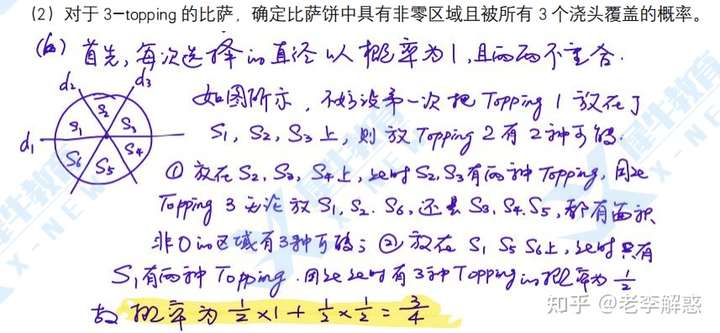 （2）对于 3—topping 的比萨，确定比萨饼中具有非零区域且被所有 3 个浇头覆盖的概率。
首先，每次选择的直径以概率为1，且两两不重合.
d₁ d₂ d₃
S₁ S₂ S₃ S₄ S₅ S₆
如图所示，不妨设第一次把 Topping 1 放在了
S₁，S₂，S₃上，则放Topping 2 有2种可能.
① 放在S₂, S₃, S₄上，此时S₂, S₃有两种Topping，因此
Topping 3 无论放 S₁, S₂. S₆，还是S₃, S₄. S₅，都有面积
非0的区域有3种可能；② 放在 S₁ S₅ S₆上，此时只有
S₁有两种Topping. 因此此时有3种Topping的概率为 1/2
故 概率为 1/2 × 1 + 1/2 × 1/2 = 3/4
犍牛教育
X-NEW
知乎 @老李解惑